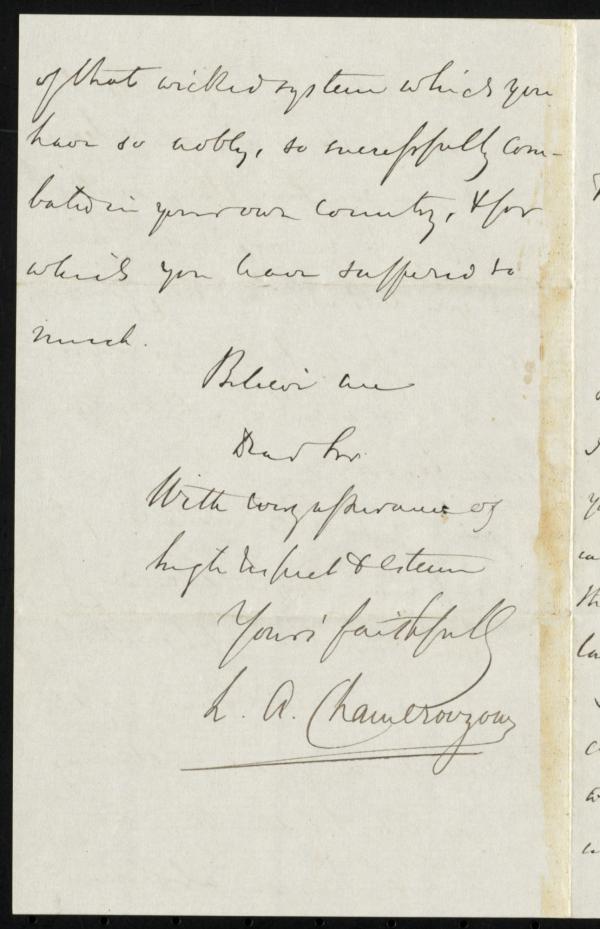 of that wicked system which you
have so nobly, so successfully com-
bated in your own country, & for
which you have suffered so
much.
Believe me
Dear Sir
With every assurance of
high respect & esteem
Yours faithfully
L. A. Chamerovzow